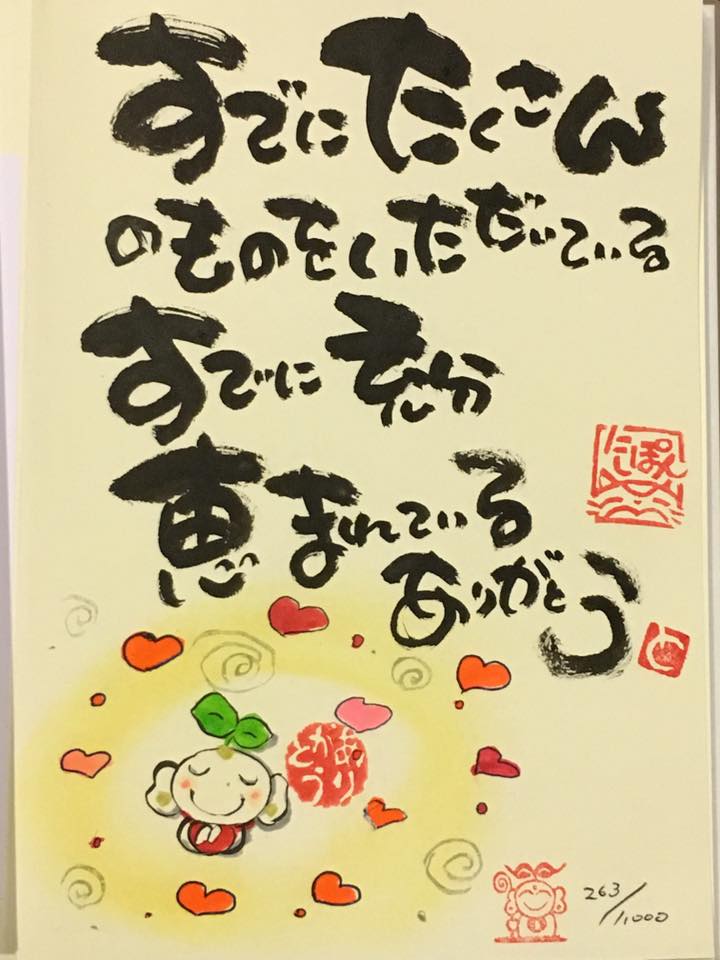 すでにたくさん
のものをいただいている
すでに充分
恵まれている
ありがとう
にっぽん
と
ありがとう
263/1,000